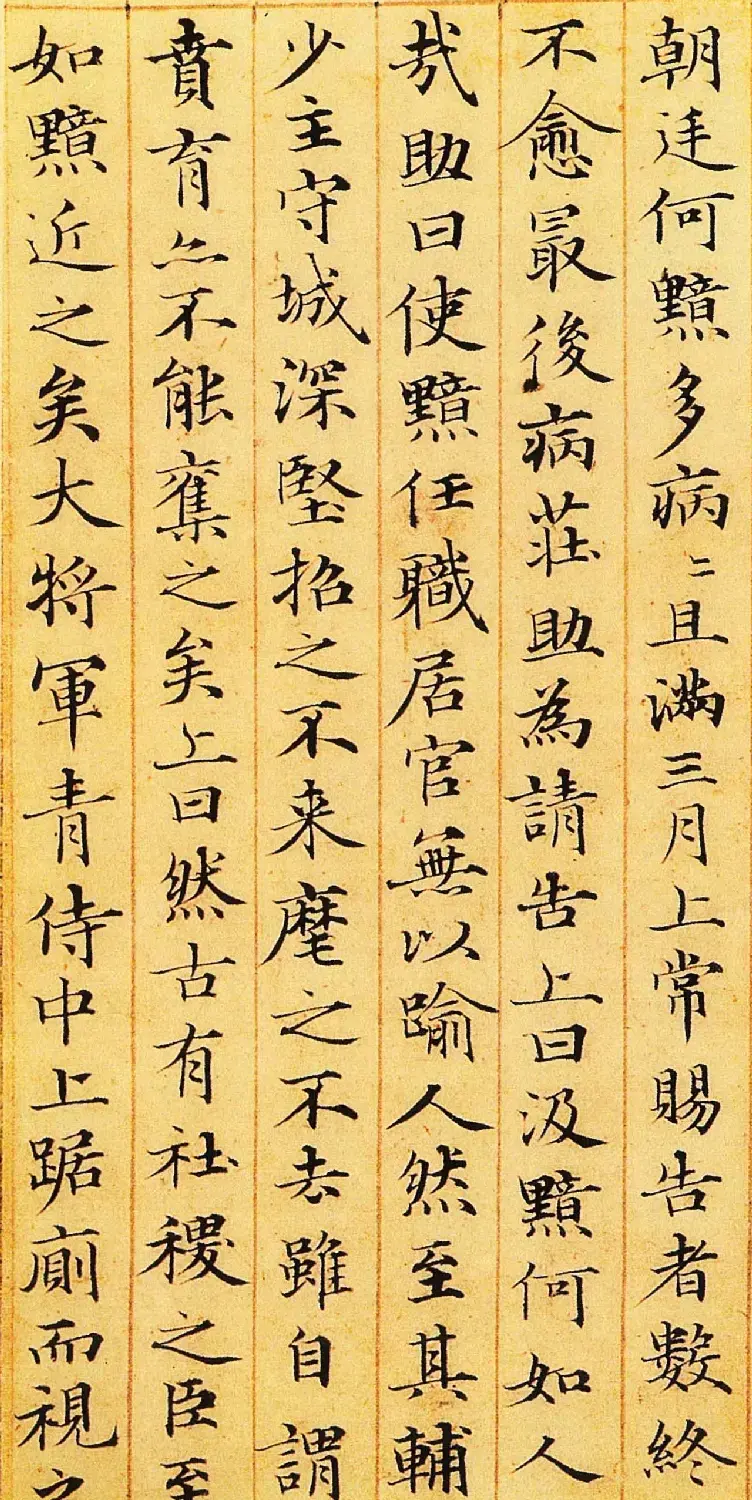 朝廷何黯多病〻且満三月上常賜告者數終
不愈最後病荘助為請告上曰汲黯何如人
㢤助曰使黯任職居官無以踰人然至其輔
少主守城深堅招之不来麾之不去雖自謂
賁育亦不能奪之矣上曰然古有社稷之臣至
如黯近之矣大将軍青侍中上踞廁而視之